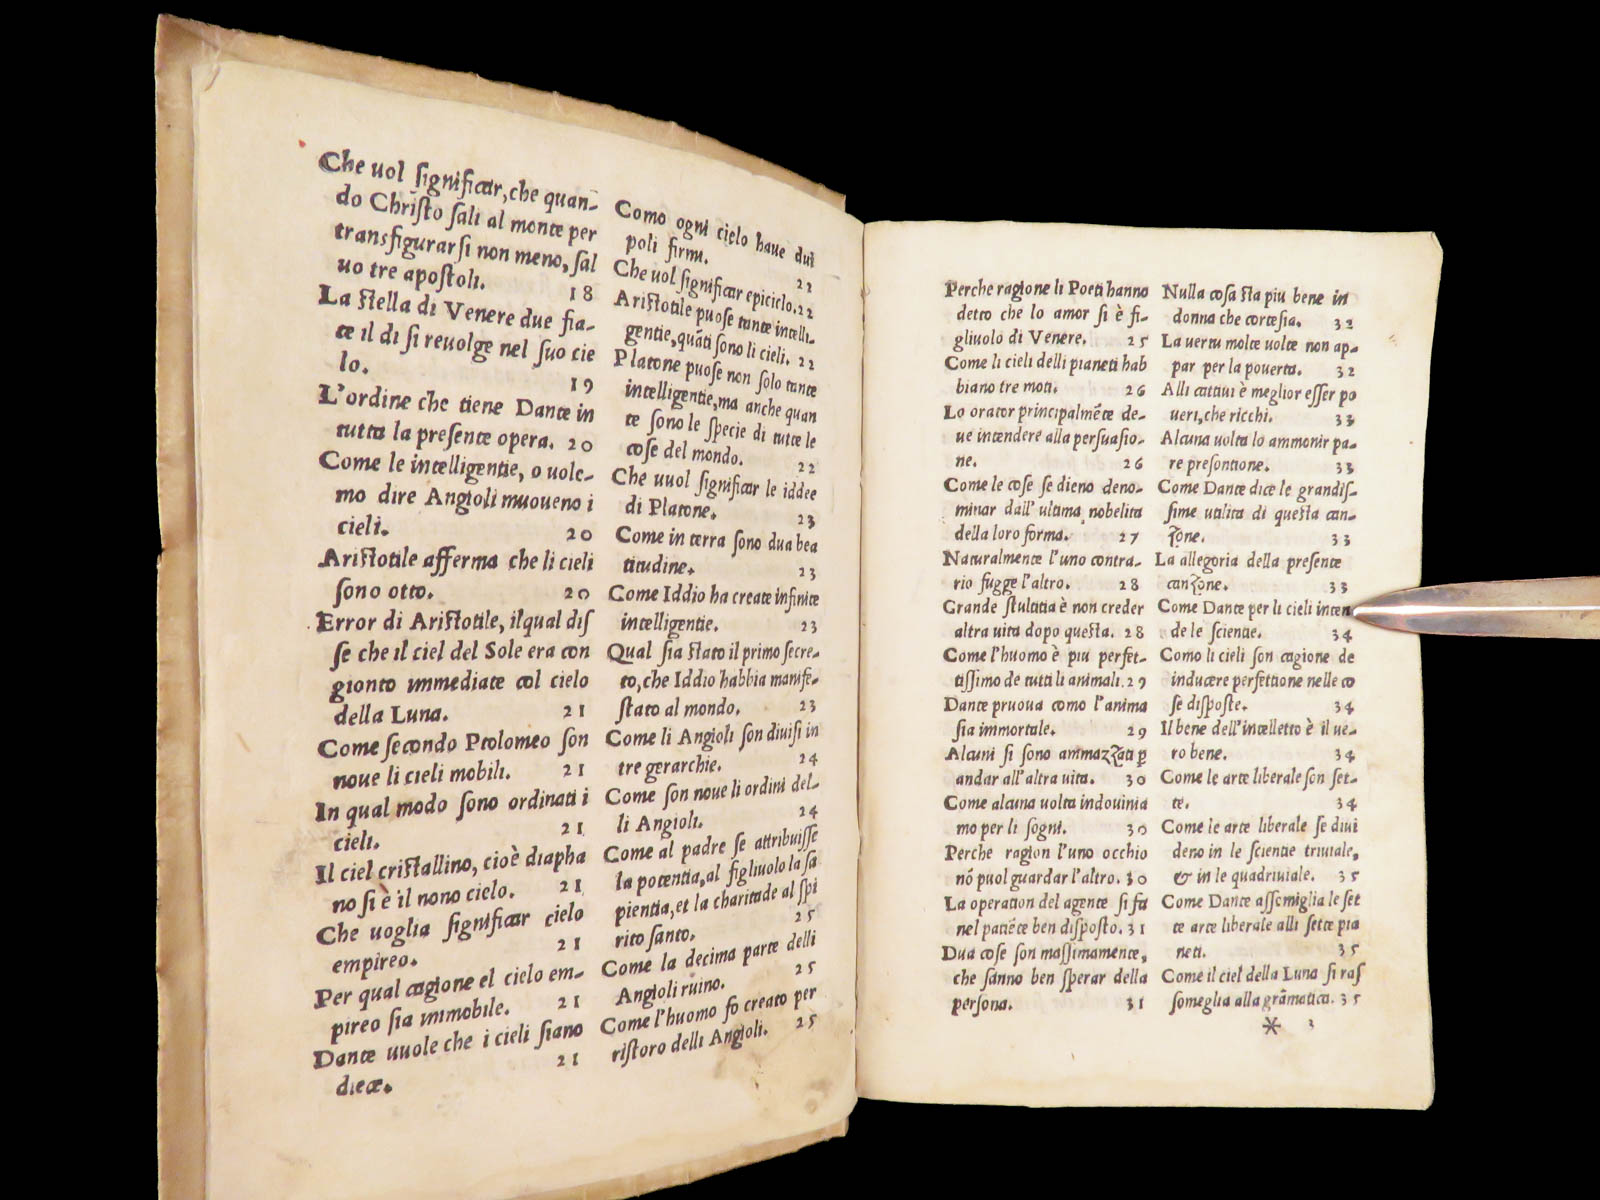 Che uol ſignificar, che quan-
do Chriſto ſali al monte per
transfigurarſi non meno, ſal
uo tre apoſtoli. 18
La ſtella di Venere due fia-
te il di ſi reuolge nel ſuo cie
lo. 19
L'ordine che tiene Dante in
tutta la preſente opera. 20
Come le intelligentie, o uole-
mo dire Angioli muoueno i
cieli. 20
Ariſtotile afferma che li cieli
ſono otto. 20
Error di Ariſtotile, ilqual diſ
ſe che il ciel del Sole era con
gionto immediate col cielo
della Luna. 21
Come ſecondo Ptolomeo ſon
noue li cieli mobili. 21
In qual modo ſono ordinati i
cieli. 21
Il ciel criſtallino, cioè diapha
no ſi è il nono cielo. 21
Che uoglia ſignificar cielo
empireo. 21
Per qual cagione el cielo em-
pireo ſia immobile. 21
Dante uuole che i cieli ſiano
diece. 21
Como ogni cielo haue dui
poli firmi. 22
Che uol ſignificar epiciclo. 22
Ariſtotile puoſe tante intelli-
gentie, quãti ſono li cieli. 22
Platone puoſe non ſolo tante
intelligentie, ma anche quan
te ſono le ſpecie di tutte le
coſe del mondo. 22
Che uuol ſignificar le iddee
di Platone. 23
Come in terra ſono dua bea
titudine. 23
Come Iddio ha create infinite
intelligentie. 23
Qual ſia ſtato il primo ſecre-
to, che Iddio habbia manife-
ſtato al mondo. 23
Come li Angioli ſon diuiſi in
tre gerarchie. 24
Come ſon noue li ordini del-
li Angioli. 24
Come al padre ſe attribuiſſe
la potentia, al figliuolo la ſa
pientia, et la charitade al ſpi
rito ſanto. 25
Come la decima parte delli
Angioli ruino. 25
Come l'huomo fo creato per
riſtoro delli Angioli. 25
Perche ragione li Poeti hanno
detto che lo amor ſi è fi-
gliuolo di Venere. 25
Come li cieli delli pianeti hab
biano tre moti. 26
Lo orator principalmẽte de-
ue intendere alla perſuaſio-
ne. 26
Come le coſe ſe dieno deno-
minar dall' ultima nobelita
della loro forma. 27
Naturalmente l'uno contra-
rio fugge l'altro. 28
Grande ſtultitia è non creder
altra uita dopo queſta. 28
Come l'huomo è piu perfet-
tiſſimo de tutti li animali. 29
Dante pruoua como l'anima
ſia immortale. 29
Alcuni ſi ſono ammazzati ꝑ
andar all'altra uita. 30
Come alcuna uolta indouinia
mo per li ſogni. 30
Perche ragion l'uno occhio
nõ puol guardar l'altro. 30
La operation del agente ſi fa
nel patiẽte ben diſpoſto. 31
Dua coſe ſon maſſimamente,
che fanno ben ſperar della
perſona. 31
Nulla coſa ſta piu bene in
donna che corteſia. 32
La uertu molte uolte non ap-
par per la pouerta. 32
Alli cattiui è meglior eſſer po
ueri, che ricchi. 33
Alcuna uolta lo ammonir pa-
re preſontione. 33
Come Dante dice le grandiſ-
ſime utilita di queſta can-
zone. 33
La allegoria della preſente
canzone. 33
Come Dante per li cieli inten
de le ſcientie. 34
Como li cieli ſon cagione de
inducere perfettione nelle co
ſe diſpoſte. 34
Il bene dell'intelletto è il ue-
ro bene. 34
Come le arte liberale ſon ſet-
te. 34
Come le arte liberale ſe diui
deno in le ſcientie triuiale,
& in le quadriuiale. 35
Come Dante aſſemiglia le ſet
te arte liberale alli ſette pia
neti. 35
Come il ciel della Luna ſi raſ
ſomeglia alla grãmatica. 35
* 3